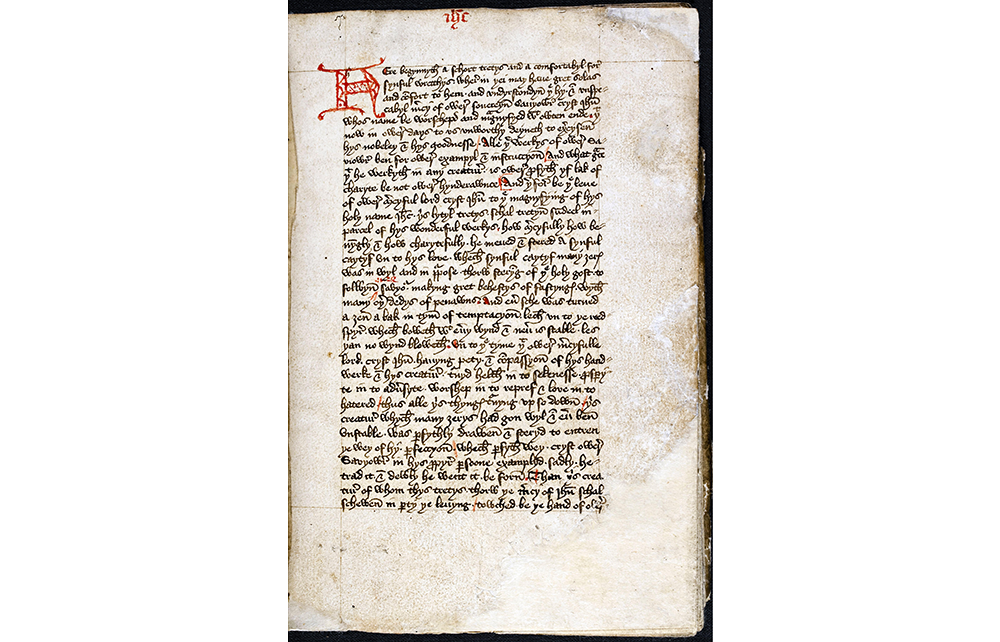 ihc
Here begynnyth a schort tretys and a comfortabyl for
synful wrecchys. wher in þei may haue gret solas
and cōfort to hem. and vndyrstondyn þe hy & vnspe-
cabyl mercy of ower souereyn Sauyowr cryst Ihū
whos name be worschepd and magnyfyed wt owten ende þt
now in ower days to vs vnworthy deyneth to exercysen
hys nobeley & hys goodnesse. Alle þe werkys of ower Sa-
uiowr ben for ower exampyl & instruccyon and what grace
þt he werkyth in any creatur. is ower profyth yf lak of
charyte be not ower hynderawnce. And þerfor be þe leue
of ower mercyful lord cryst Ihū to þe magnyfying of hys
holy name Ihc. þis lytyl tretys schal tretyn sūdeel in
parcel of hys wonderful werkys. how mercyfully how be-
nyngly & how charytefully. he meued & stered a synful
caytyf vn to hys loue. whech synful caytyf many ȝerys
was in wyl and in purpose thorw steryng of þe holy gost. to
folwyn Sauyor. makyng gret behestys of fastyngys. wyth
many oþer dedys of penawns. And euer sche was turned
a ȝen a bak in tym of temptacyon. lech vn to þe red
spyr. whech boweth wt euery wynd & neuer is stable. les
þan no wynd bloweth. vn to þe tyme þt ower mercyfulle
lord. cryst Ihū. hauyng pety. & cōpassyon of hys hand
werke & hys creatur. turnyd helth in to sekenesse. prospery
te in to aduersyte. worshep in to repref & loue in to
hatered. thus alle þis thyngys turnyng vp so down. þis
creatur whych many ȝerys had gon wyl & euer ben
vnstable. was parfythly drawen & steryd to entren
þe wey of hy perfeccyon. whech parfyth wey. cryst ower
Savyowr in hys propyr persoone examplyd. sadly. he
trad it & dewly he went it be forn. Than þis crea
tur of whom thys tretys thorw þe mercy of Ihū schal
schewen in party þe leuyng. towched be þe hand of ower